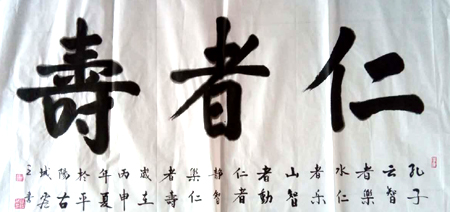 仁者壽
孔子
云智
者樂
水仁
者乐
山智
者動
仁者
靜智
樂仁
者壽
歲在
丙申
年夏
於平
陽古
城
王